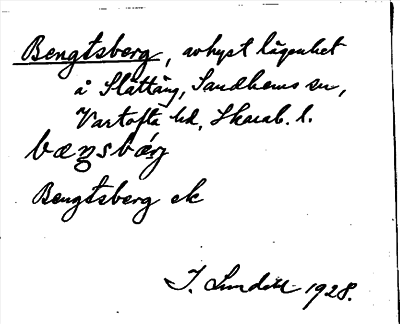 Bengtsberg, avhyst lägenhet
å Slättäng, Sandhems sn,
Vartofta hd, Skarab. l.
bæŋsbærj
Bengtsberg ek
J. Lundahl 1928.